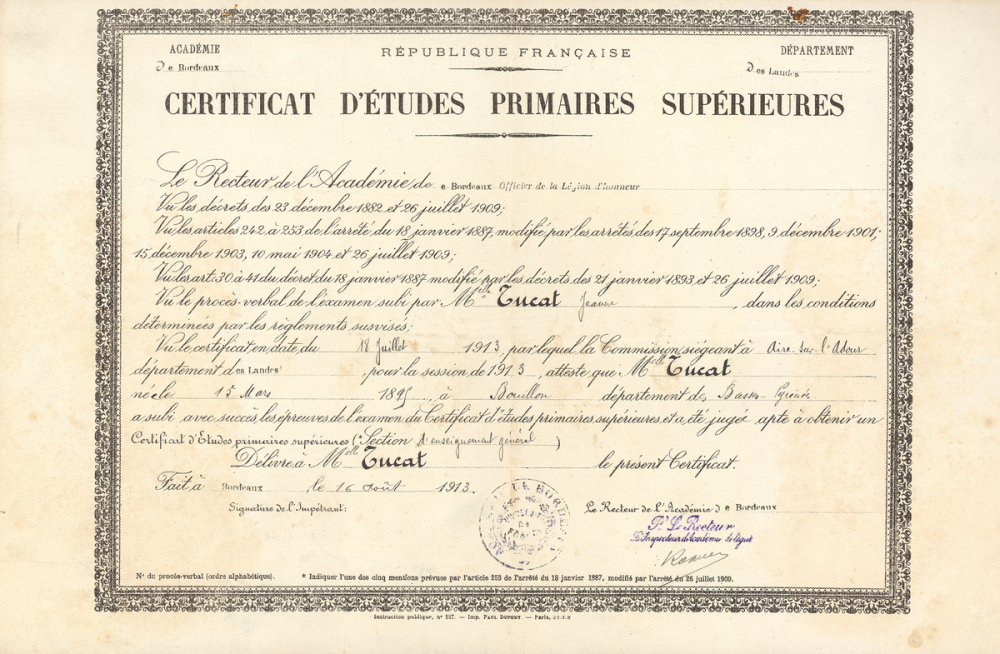 ACADÉMIE
De Bordeaux
RÉPUBLIQUE FRANÇAISE
DÉPARTEMENT
Des Landes
CERTIFICAT D'ÉTUDES PRIMAIRES SUPÉRIEURES
Le Recteur de l'Académie de e Bordeaux Officier de la Légion d'honneur
Vu les décrets des 23 décembre 1882 et 26 juillet 1909;
Vu les articles 242 à 253 de l'arrêté du 18 janvier 1887, modifié par les arrêtés des 17 septembre 1898, 9 décembre 1901;
15 décembre 1903, 10 mai 1904 et 26 juillet 1909;
Vu les art. 30 à 41 du décret du 18 janvier 1887 modifié par les décrets des 21 janvier 1893 et 26 juillet 1909;
Vu le procès-verbal de l'examen subi par Melle Tucat Jeanne, dans les conditions
déterminées par les règlements susvisés;
Vu le certificat en date du 18 Juillet 1913, par lequel la Commission siégeant à Aire-sur-l'Adour
département des Landes, pour la session de 1913, atteste que Melle Tucat
née le 15 Mars 1895, à Bouillon département des Basses-Pyrénées
a subi avec succès les épreuves de l'examen du Certificat d'études primaires supérieures et a été jugée apte à obtenir un
Certificat d'Études primaires supérieures (* Section d'enseignement général)
Délivré à Melle Tucat le présent Certificat.
Fait à Bordeaux le 16 Août 1913.
Signature de l'Impétrant:
Le Recteur de l'Académie De Bordeaux
Pr Le Recteur
L'Inspecteur d'Académie délégué
N° du procès-verbal (ordre alphabétique).
* Indiquer l'une des cinq mentions prévues par l'article 253 de l'arrêté du 18 janvier 1887, modifié par l'arrêté du 26 juillet 1909.
Instruction publique, n° 557. — Imp. PAUL DUPONT. — Paris,